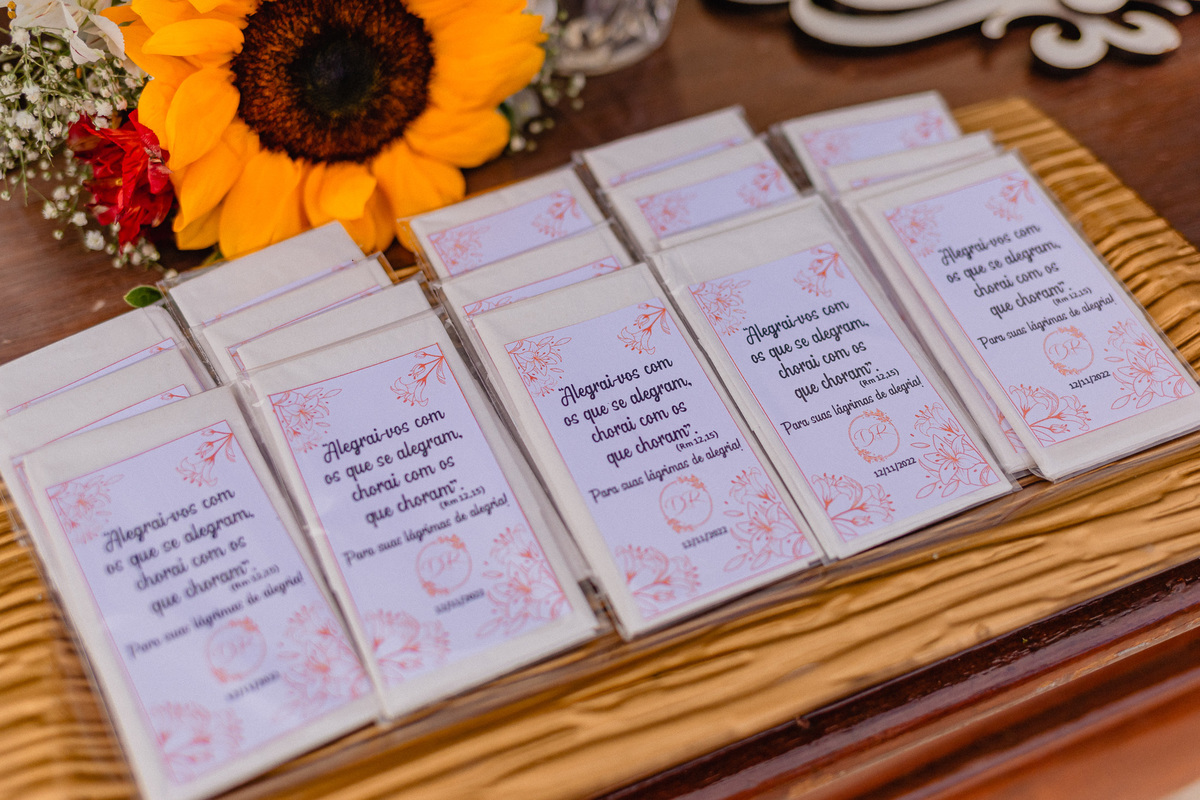 "Alegrai-vos com
os que se alegram,
chorai com os
que choram".
(Rm 12,15)
Para suas lágrimas de alegria!
DR
12/11/2022
"Alegrai-vos com
os que se alegram,
chorai com os
que choram".
(Rm 12,15)
Para suas lágrimas de alegria!
DR
12/11/2022
"Alegrai-vos com
os que se alegram,
chorai com os
que choram".
(Rm 12,15)
Para suas lágrimas de alegria!
DR
12/11/2022
"Alegrai-vos com
os que se alegram,
chorai com os
que choram".
(Rm 12,15)
Para suas lágrimas de alegria!
DR
12/11/2022
"Alegrai-vos com
os que se alegram,
chorai com os
que choram".
(Rm 12,15)
Para suas lágrimas de alegria!
DR
12/11/2022